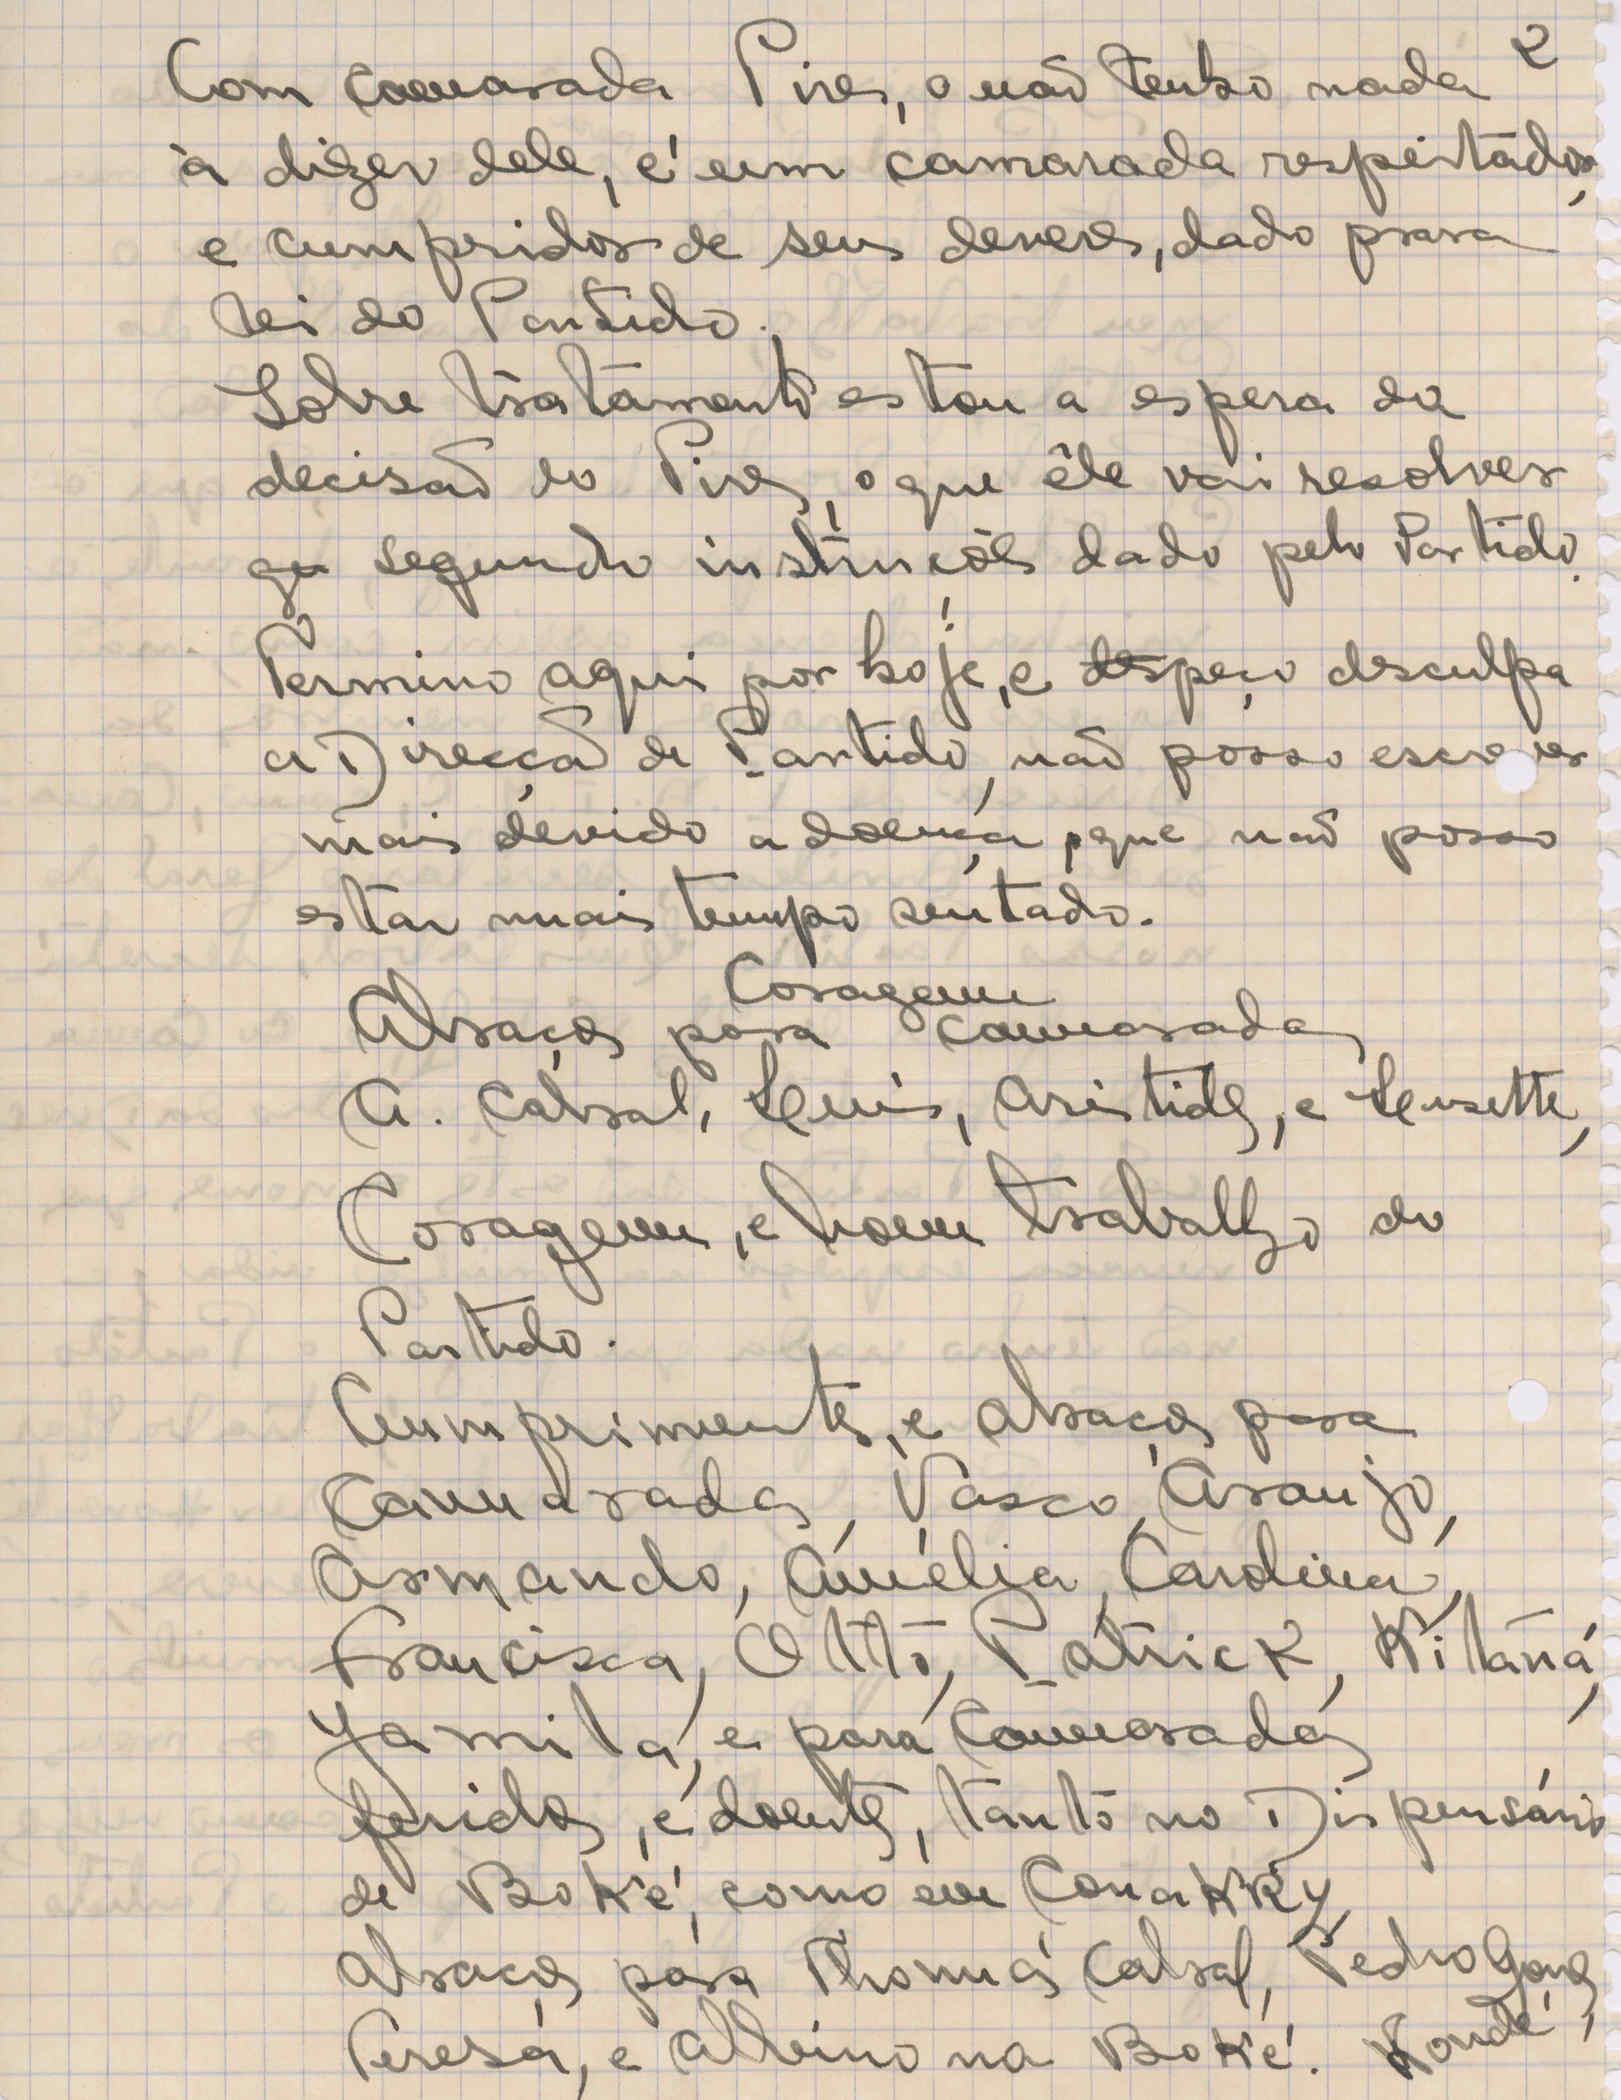 2
Com camarada Pires, o não tenho nada
à dizer dele, é um camarada respeitador,
e cumpridor de seus deveres, dado para
lei do Partido.
Sobre tratamento estou a espera da
decisão do Pires, o que êle vai resolver
segundo instruções dado pelo Partido.
Termino aqui por hoje, e despeço desculpa
a Direcção de Partido, não posso escrever
mais devido a doença, que não posso
estar mais tempo sentado.
Coragem
Abraços para camaradas
A. Cabral, Luis, Aristides, e Lusette,
Coragem, e bom trabalho do
Partido.
Cumprimentos, e abraços para
Camaradas, Vasco, Araujo,
Armando, Amélia, Carolina,
Francisca, Ottó, Patrick, Kitáná,
Yamilá, e para Camaradas
feridos, e doentes, tanto no Dispensário
de Boké, como em Conakry
abraços para Thomás Cabral, Pedro Gomes,
Teresa, e Albino na Boké.